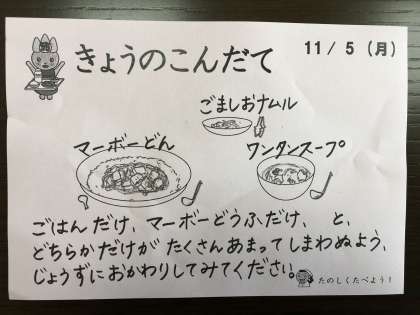 きょうのこんだて
11/5(月)
ごましおナムル
マーボーどん
ワンタンスープ
ごはんだけ、マーボーどうふだけ、と、
どちらかだけが たくさんあまってしまわぬよう、
じょうずにおかわりしてみてください。
たのしくたべよう!